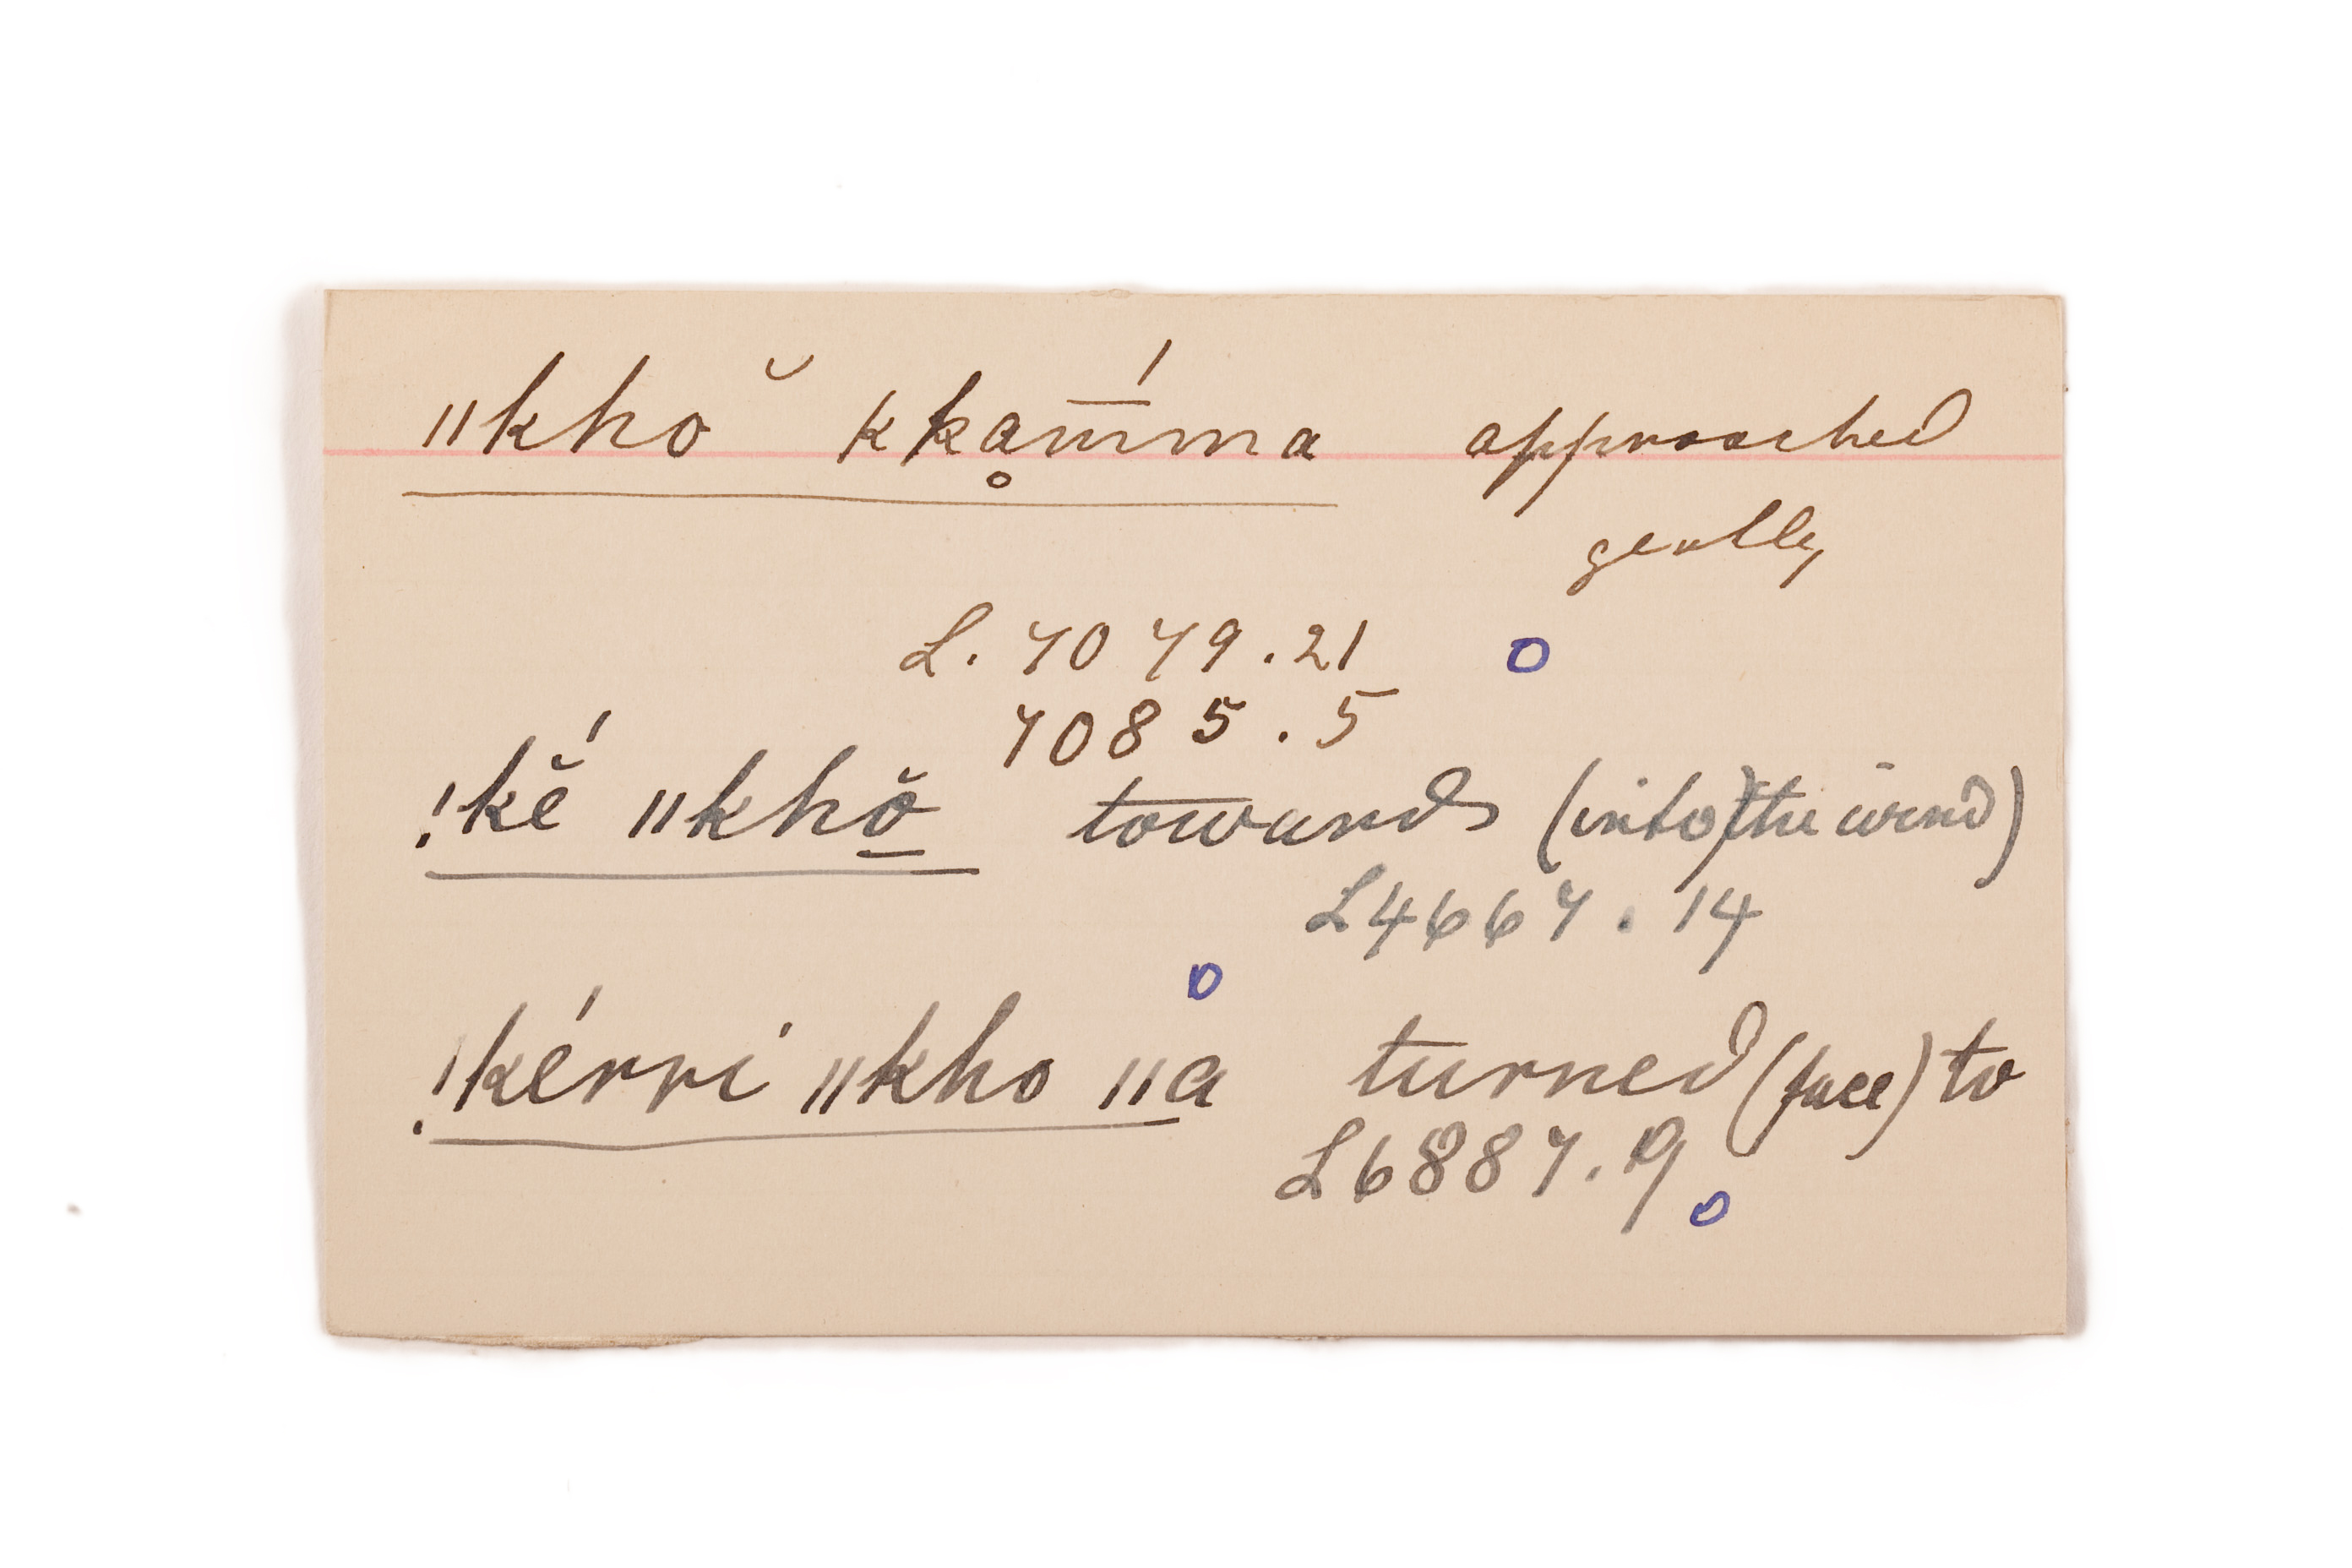 ǁkhŏ kkḁm̄́ma approached
gently
L. 7079.21
7085.5
!kĕ́ ǁkhŏ̱ towards (into)(the wind)
L4667.14
!kérri ǁkho ǁa̱ turned (face) to
L6887.9